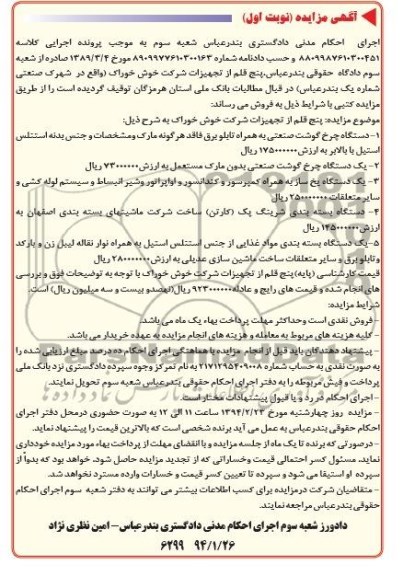 آگهی مزایده (نوبت اول)
اجرای احکام مدنی دادگستری بندرعباس شعبه سوم به موجب پرونده اجرایی کلاسه
۸۸۰۹۹۸۷۶۱۰۳۰۰۴۵۱ و حسب دادنامه شماره ۸۹۰۹۹۷۷۶۱۰۳۰۰۱۶۳ مورخ ۱۳۸۹/۳/۴ صادره از شعبه
سوم دادگاه حقوقی بندرعباس،پنج قلم از تجهیزات شرکت خوش خوراک (واقع در شهرک صنعتی
شماره یک بندرعباس) در قبال مطالبات بانک ملی استان هرمزگان توقیف گردیده است را از طریق
مزایده کتبی با شرایط ذیل به فروش می رساند:
موضوع مزایده: پنج قلم از تجهیزات شرکت خوش خوراک به شرح ذیل:
۱- دستگاه چرخ گوشت صنعتی به همراه تابلو برق فاقد هرگونه مارک ومشخصات و جنس بدنه استنلس
استیل با بالابر به ارزش ۱۷۵۰۰۰۰۰۰ ریال
۲- یک دستگاه چرخ گوشت صنعتی بدون مارک مستعمل به ارزش ۷۳۰۰۰۰۰۰ ریال
۳- یک دستگاه یخ ساز به همراه کمپرسور و کندانسور و اواپراتور وشیر انبساط و سیستم لوله کشی و
سایر متعلقات ۲۵۰۰۰۰۰۰۰ ریال
۴- دستگاه بسته بندی شرینگ پک (کارتن) ساخت شرکت ماشینهای بسته بندی اصفهان به
ارزش ۱۴۵۰۰۰۰۰۰ ریال
۵- یک دستگاه بسته بندی مواد غذایی از جنس استنلس استیل به همراه نوار نقاله لیبل زن و بارکد
وتابلو برق و سایر متعلقات ساخت ماشین سازی عدیلی به ارزش ۲۸۰۰۰۰۰۰۰ ریال
قیمت کارشناسی (پایه) پنج قلم از تجهیزات شرکت خوش خوراک با توجه به توضیحات فوق و بررسی
های انجام شده و قیمت های رایج و عادله ۹۲۳۰۰۰۰۰۰ ریال(نهصدو بیست و سه میلیون ریال) است.
شرایط مزایده:
- فروش نقدی است وحداکثر مهلت پرداخت بهاء یک ماه می باشد.
- کلیه هزینه های مربوط به معامله و هزینه های انجام مزایده به عهده خریدار می باشد.
- پیشنهاد دهندگان باید قبل از انجام مزایده با هماهنگی اجرای احکام ده درصد مبلغ ارزیابی شده را
به صورت نقدی به حساب شماره ۲۱۷۱۲۹۵۴۰۹۰۰۸ به نام تمرکز وجوه سپرده دادگستری نزد بانک ملی
پرداخت و فیش مربوطه را به دفتر اجرای احکام حقوقی بندرعباس شعبه سوم تحویل نمایند.
- اجرای احکام در رد و یا قبول پیشنهادات مختار است.
- مزایده روز چهارشنبه مورخ ۱۳۹۴/۲/۲۳ ساعت ۱۱ الی ۱۲ به صورت حضوری درمحل دفتر اجرای
احکام حقوقی بندرعباس به عمل می آید برنده شخصی است که بالاترین قیمت را پیشنهاد نماید.
- درصورتی که برنده تا یک ماه از جلسه مزایده و با انقضای مهلت از پرداخت بهاء مورد مزایده خودداری
نماید، مسئول کسر احتمالی قیمت وخساراتی که از تجدید مزایده حاصل شود، خواهد بود که بدواً از
سپرده او استیفا می شود و سپرده تا تعیین کسر قیمت و خسارات وارده مسترد نخواهد شد.
- متقاضیان شرکت درمزایده برای کسب اطلاعات بیشتر می توانند به دفتر شعبه سوم اجرای احکام
حقوقی بندرعباس مراجعه نمایند.
دادورز شعبه سوم اجرای احکام مدنی دادگستری بندرعباس- امین نظری نژاد
۹۴/۱/۲۶ ۶۲۹۹